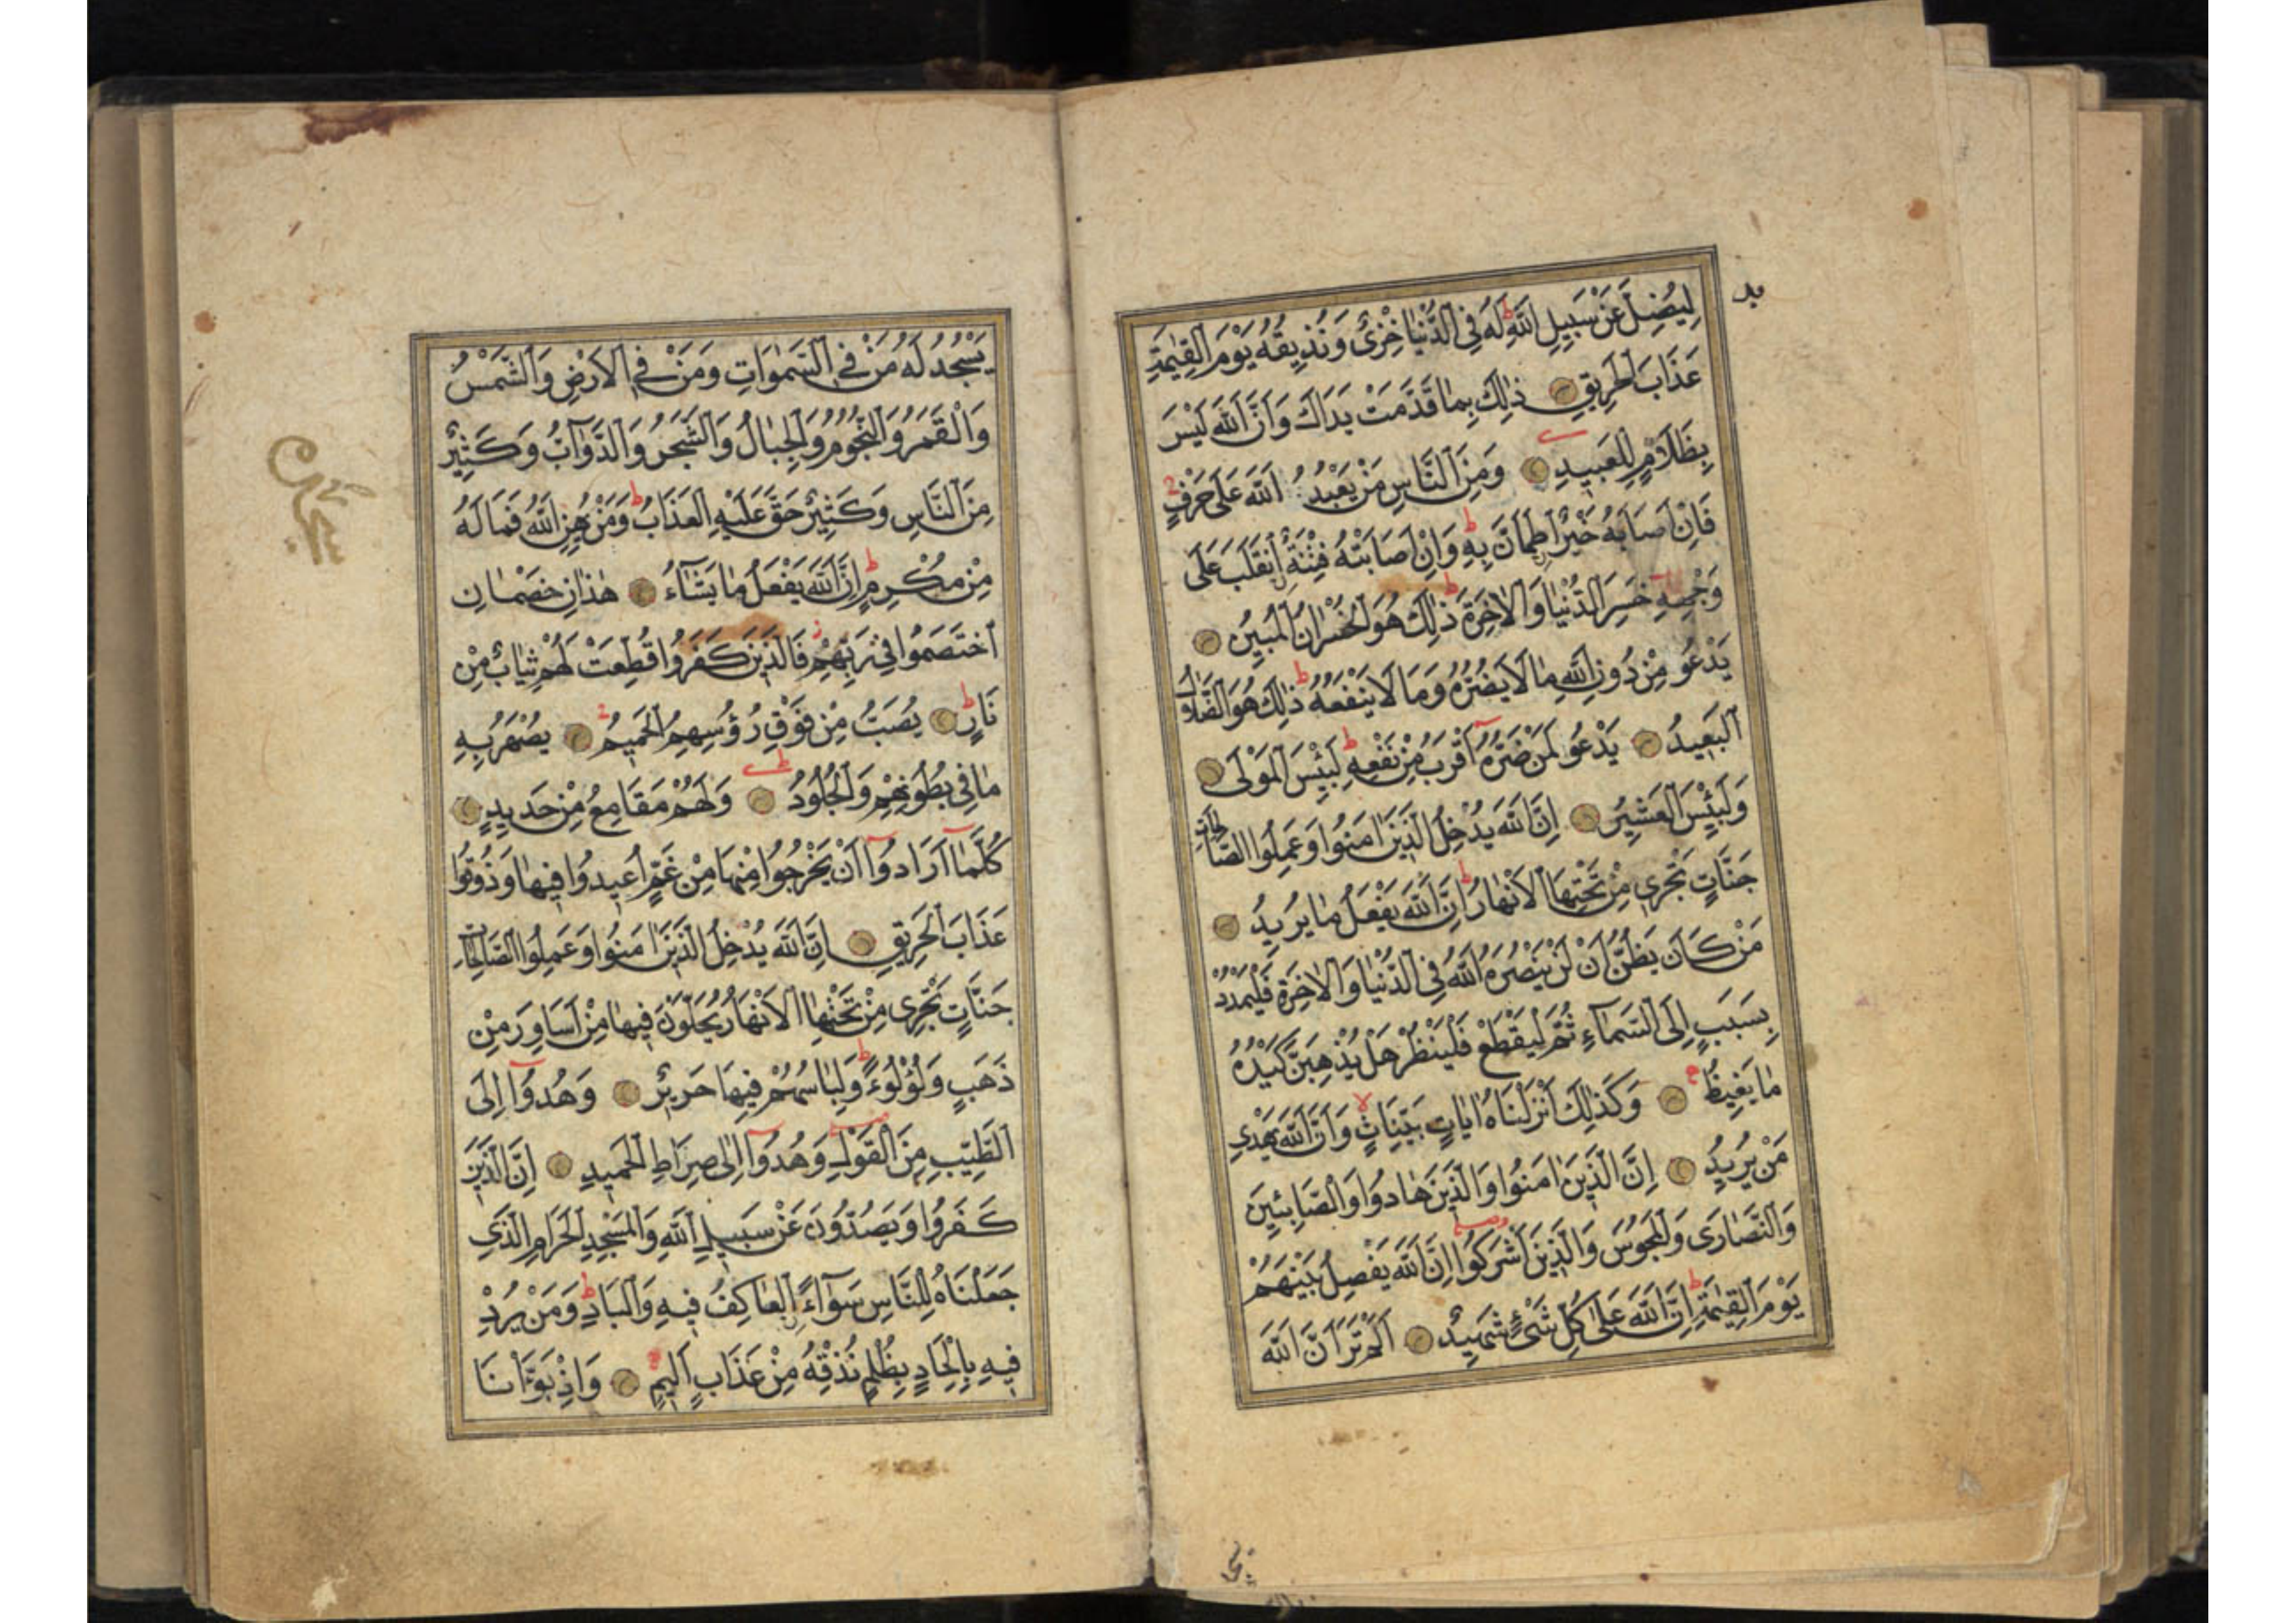 لِيُضِلَّ عَنْ سَبِيلِ اللّٰهِ ط لَهُ فِي الدُّنْيَا خِزْيٌ وَنُذِيقُهُ يَوْمَ الْقِيٰمَةِ
عَذَابَ الْحَرِيقِ ذٰلِكَ بِمَا قَدَّمَتْ يَدَاكَ وَاَنَّ اللّٰهَ لَيْسَ
بِظَلَّامٍ لِلْعَبِيدِ وَمِنَ النَّاسِ مَنْ يَعْبُدُ اللّٰهَ عَلٰى حَرْفٍ
فَاِنْ اَصَابَهُ خَيْرٌ اطْمَاَنَّ بِهِ ط وَاِنْ اَصَابَتْهُ فِتْنَةٌ انْقَلَبَ عَلٰى
وَجْهِهِ خَسِرَ الدُّنْيَا وَالْاٰخِرَةَ ط ذٰلِكَ هُوَ الْخُسْرَانُ الْمُبِينُ
يَدْعُو مِنْ دُونِ اللّٰهِ مَا لَا يَضُرُّهُ وَمَا لَا يَنْفَعُهُ ط ذٰلِكَ هُوَ الضَّلَالُ
الْبَعِيدُ يَدْعُو لَمَنْ ضَرُّهُ اَقْرَبُ مِنْ نَفْعِهِ ط لَبِئْسَ الْمَوْلٰى
وَلَبِئْسَ الْعَشِيرُ اِنَّ اللّٰهَ يُدْخِلُ الَّذِينَ اٰمَنُوا وَعَمِلُوا الصَّالِحَاتِ
جَنَّاتٍ تَجْرِي مِنْ تَحْتِهَا الْاَنْهَارُ ط اِنَّ اللّٰهَ يَفْعَلُ مَا يُرِيدُ
مَنْ كَانَ يَظُنُّ اَنْ لَنْ يَنْصُرَهُ اللّٰهُ فِي الدُّنْيَا وَالْاٰخِرَةِ فَلْيَمْدُدْ
بِسَبَبٍ اِلَى السَّمَاءِ ثُمَّ لْيَقْطَعْ فَلْيَنْظُرْ هَلْ يُذْهِبَنَّ كَيْدُهُ
مَا يَغِيظُ وَكَذٰلِكَ اَنْزَلْنَاهُ اٰيَاتٍ بَيِّنَاتٍ لا وَاَنَّ اللّٰهَ يَهْدِي
مَنْ يُرِيدُ اِنَّ الَّذِينَ اٰمَنُوا وَالَّذِينَ هَادُوا وَالصَّابِئِينَ
وَالنَّصَارٰى وَالْمَجُوسَ وَالَّذِينَ اَشْرَكُوا اِنَّ اللّٰهَ يَفْصِلُ بَيْنَهُمْ
يَوْمَ الْقِيٰمَةِ ط اِنَّ اللّٰهَ عَلٰى كُلِّ شَيْءٍ شَهِيدٌ اَلَمْ تَرَ اَنَّ اللّٰهَ
يَسْجُدُ لَهُ مَنْ فِي السَّمٰوَاتِ وَمَنْ فِي الْاَرْضِ وَالشَّمْسُ
وَالْقَمَرُ وَالنُّجُومُ وَالْجِبَالُ وَالشَّجَرُ وَالدَّوَآبُّ وَكَثِيرٌ
مِنَ النَّاسِ وَكَثِيرٌ حَقَّ عَلَيْهِ الْعَذَابُ ط وَمَنْ يُهِنِ اللّٰهُ فَمَا لَهُ
مِنْ مُكْرِمٍ ط اِنَّ اللّٰهَ يَفْعَلُ مَا يَشَآءُ هٰذَانِ خَصْمَانِ
اخْتَصَمُوا فِي رَبِّهِمْ ز فَالَّذِينَ كَفَرُوا قُطِّعَتْ لَهُمْ ثِيَابٌ مِنْ
نَارٍ ط يُصَبُّ مِنْ فَوْقِ رُؤُسِهِمُ الْحَمِيمُ يُصْهَرُ بِهِ
مَا فِي بُطُونِهِمْ وَالْجُلُودُ وَلَهُمْ مَقَامِعُ مِنْ حَدِيدٍ
كُلَّمَآ اَرَادُوٓا اَنْ يَخْرُجُوا مِنْهَا مِنْ غَمٍّ اُعِيدُوا فِيهَا وَذُوقُوا
عَذَابَ الْحَرِيقِ اِنَّ اللّٰهَ يُدْخِلُ الَّذِينَ اٰمَنُوا وَعَمِلُوا الصَّالِحَاتِ
جَنَّاتٍ تَجْرِي مِنْ تَحْتِهَا الْاَنْهَارُ يُحَلَّوْنَ فِيهَا مِنْ اَسَاوِرَ مِنْ
ذَهَبٍ وَلُؤْلُؤًا ط وَلِبَاسُهُمْ فِيهَا حَرِيرٌ وَهُدُوٓا اِلَى
الطَّيِّبِ مِنَ الْقَوْلِ وَهُدُوٓا اِلٰى صِرَاطِ الْحَمِيدِ اِنَّ الَّذِينَ
كَفَرُوا وَيَصُدُّونَ عَنْ سَبِيلِ اللّٰهِ وَالْمَسْجِدِ الْحَرَامِ الَّذِي
جَعَلْنَاهُ لِلنَّاسِ سَوَآءً الْعَاكِفُ فِيهِ وَالْبَادِ ط وَمَنْ يُرِدْ
فِيهِ بِاِلْحَادٍ بِظُلْمٍ نُذِقْهُ مِنْ عَذَابٍ اَلِيمٍ وَاِذْ بَوَّاْنَا